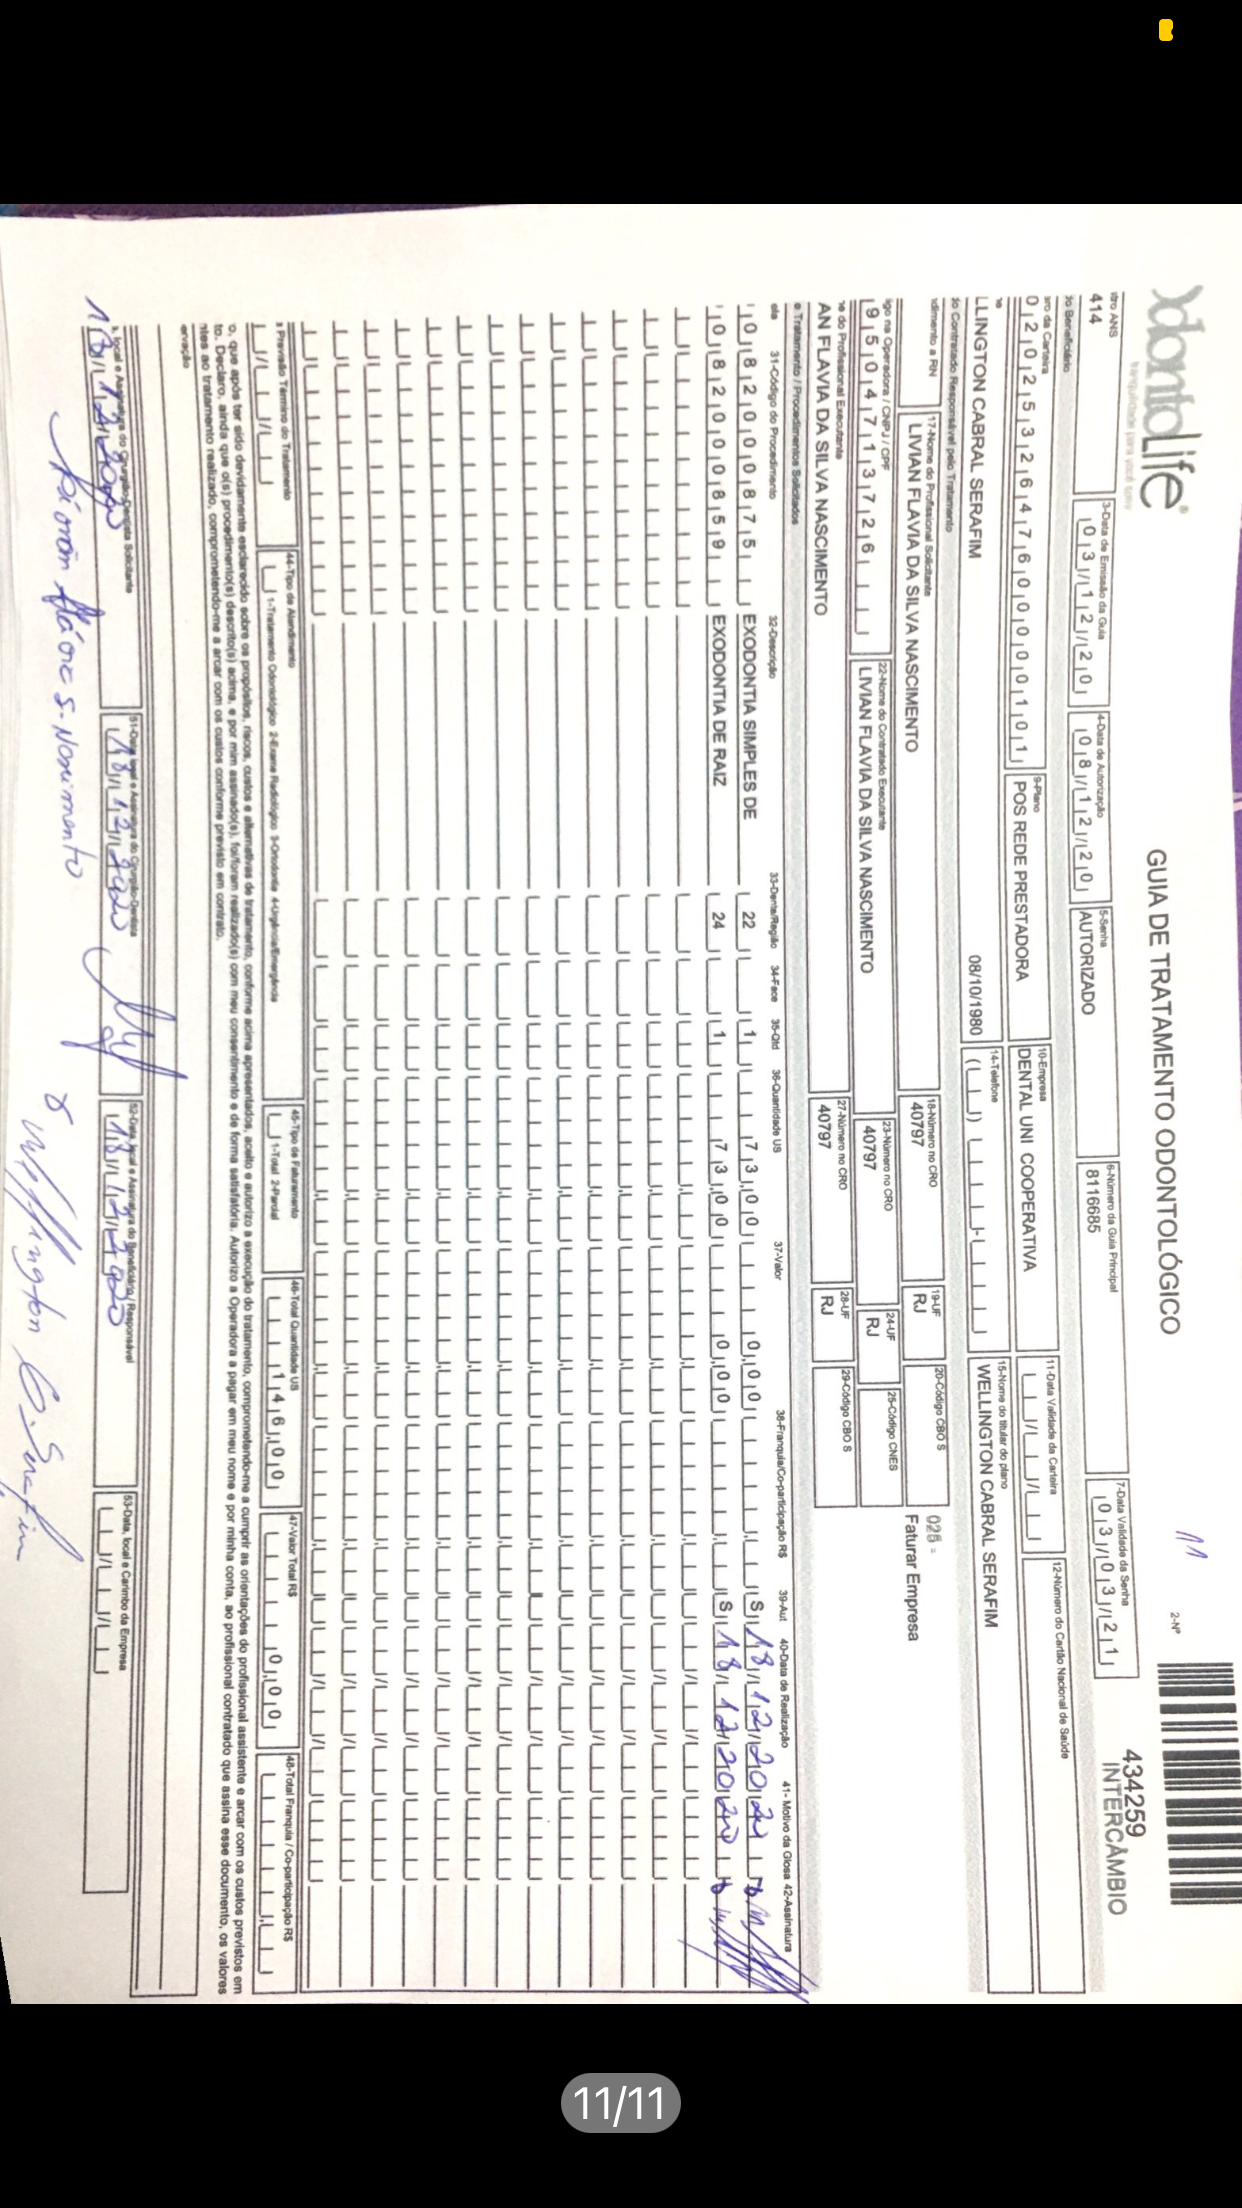 OdontoLife®
tranquilidade para você sorrir
GUIA DE TRATAMENTO ODONTOLÓGICO
11
2-Nº
434259
INTERCÂMBIO
stro ANS
414
3-Data de Emissão da Guia
03/12/20
4-Data de Autorização
08/12/20
5-Senha
AUTORIZADO
6-Número da Guia Principal
8116685
7-Data Validade da Senha
03/03/21
do Beneficiário
ero da Carteira
0202532647600000101
9-Plano
POS REDE PRESTADORA
10-Empresa
DENTAL UNI COOPERATIVA
11-Data Validade da Carteira
12-Número do Cartão Nacional de Saúde
LLINGTON CABRAL SERAFIM
08/10/1980
14-Telefone
15-Nome do titular do plano
WELLINGTON CABRAL SERAFIM
do Contratado Responsável pelo Tratamento
dimento a RN
17-Nome do Profissional Solicitante
LIVIAN FLAVIA DA SILVA NASCIMENTO
18-Número no CRO
40797
19-UF
RJ
20-Código CBO S
025 -
Faturar Empresa
igo na Operadora / CNPJ / CPF
9504713726
22-Nome do Contratado Executante
LIVIAN FLAVIA DA SILVA NASCIMENTO
23-Número no CRO
40797
24-UF
RJ
25-Código CNES
ne do Profissional Executante
AN FLAVIA DA SILVA NASCIMENTO
27-Número no CRO
40797
28-UF
RJ
29-Código CBO S
e Tratamento / Procedimentos Solicitados
ela 31-Código do Procedimento 32-Descrição 33-Dente/Região 34-Face 35-Qtd 36-Quantidade US 37-Valor 38-Franquia/Co-participação R$ 39-Aut 40-Data de Realização 41- Motivo da Glosa 42-Assinatura
0 82000875 EXODONTIA SIMPLES DE 22 1 73,00 0,00 S 18/12/2020
0 82000859 EXODONTIA DE RAIZ 24 1 73,00 0,00 S 18/12/2020
Previsão Término do Tratamento
44-Tipo de Atendimento
1-Tratamento Odontológico 2-Exame Radiológico 3-Ortodontia 4-Urgência/Emergência
45-Tipo de Faturamento
1-Total 2-Parcial
46-Total Quantidade US
146,00
47-Valor Total R$
0,00
48-Total Franquia / Co-participação R$
o, que após ter sido devidamente esclarecido sobre os propósitos, riscos, custos e alternativas de tratamento, conforme acima apresentados, aceito e autorizo a execução do tratamento, comprometendo-me a cumprir as orientações do profissional assistente e arcar com os custos previstos em
to. Declaro, ainda que o(s) procedimento(s) descrito(s) acima, e por mim assinado(s), foi/foram realizado(s) com meu consentimento e de forma satisfatória. Autorizo a Operadora a pagar em meu nome e por minha conta, ao profissional contratado que assina esse documento, os valores
ntes ao tratamento realizado, comprometendo-me a arcar com os custos conforme previsto em contrato.
ervação
, local e Assinatura do Cirurgião-Dentista Solicitante
18/12/2020
51-Data, local e Assinatura do Cirurgião-Dentista
18/12/2020
52-Data, local e Assinatura do Beneficiário / Responsável
18/12/2020
53-Data, local e Carimbo da Empresa
Wellington C. Serafim
11/11